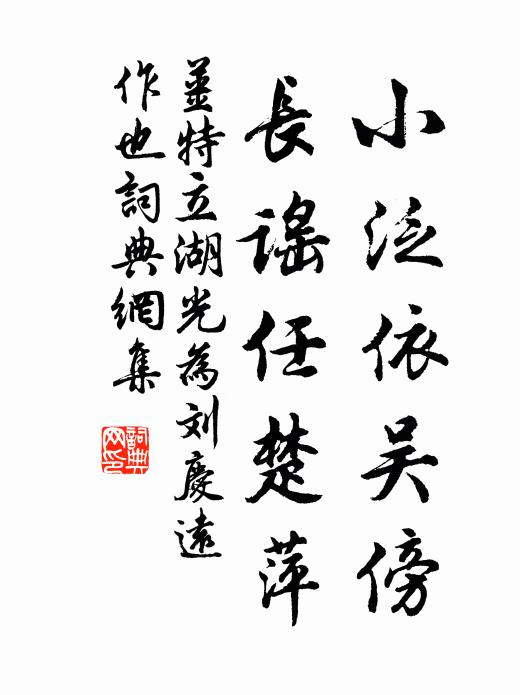 小泛依吴傍
長謠任楚萍
薑特立湖光為刘慶遠
作也詞典網集
詞典
网印